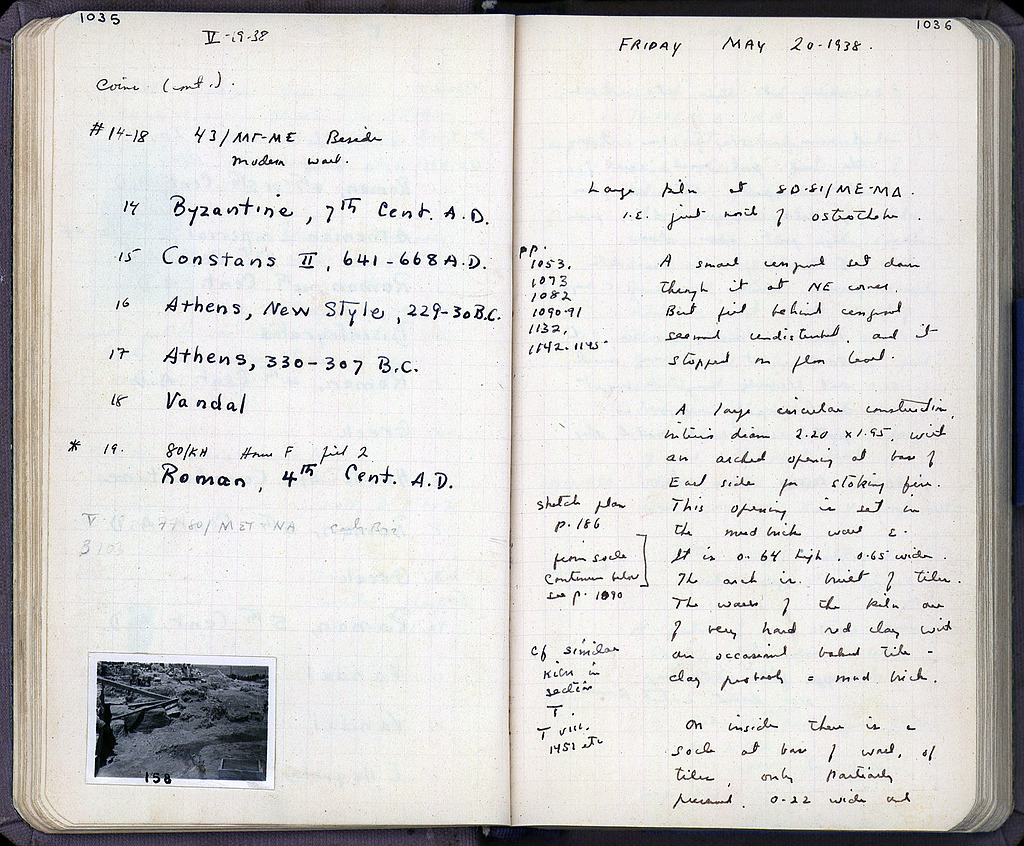 1035
V-19-38
Coins (cont.).
#14-18 43/ΜΓ-ΜΕ Beside
modern wall.
14 Byzantine, 7th Cent. A.D.
15 Constans II, 641-668 A.D.
16 Athens, New Style, 229-30 B.C.
17 Athens, 330-307 B.C.
18 Vandal
* 19. 80/ΚΗ House F pit 2
Roman, 4th Cent. A.D.
158
1036
FRIDAY MAY 20-1938.
Large kiln at 50-51/ΜΕ-ΜΔ.
i.e. just north of ostrotheke.
pp.
1053.
1073
1082
1090-91
1132.
1142-1145.
A small cesspool set down
through it at NE corner.
But fill behind cesspool
seemed undisturbed, and it
stopped on floor level.
A large circular construction,
interior diam 2.20 x 1.95, with
an arched opening at base of
East side for stoking fire.
This opening is set in
the mud brick wall
It is 0.64 high. 0.65 wide.
The arch is built of tiles.
The walls of the kiln are
of very hard red clay with
an occasional baked tile -
clay probably = mud brick.
sketch plan
p. 186
from socle
continues below
see p. 1090
cf similar
kilns in
section
T.
T VIII.
1451 etc
On inside there is a
socle at base of wall, of
tiles, only partially
preserved. 0.22 wide and